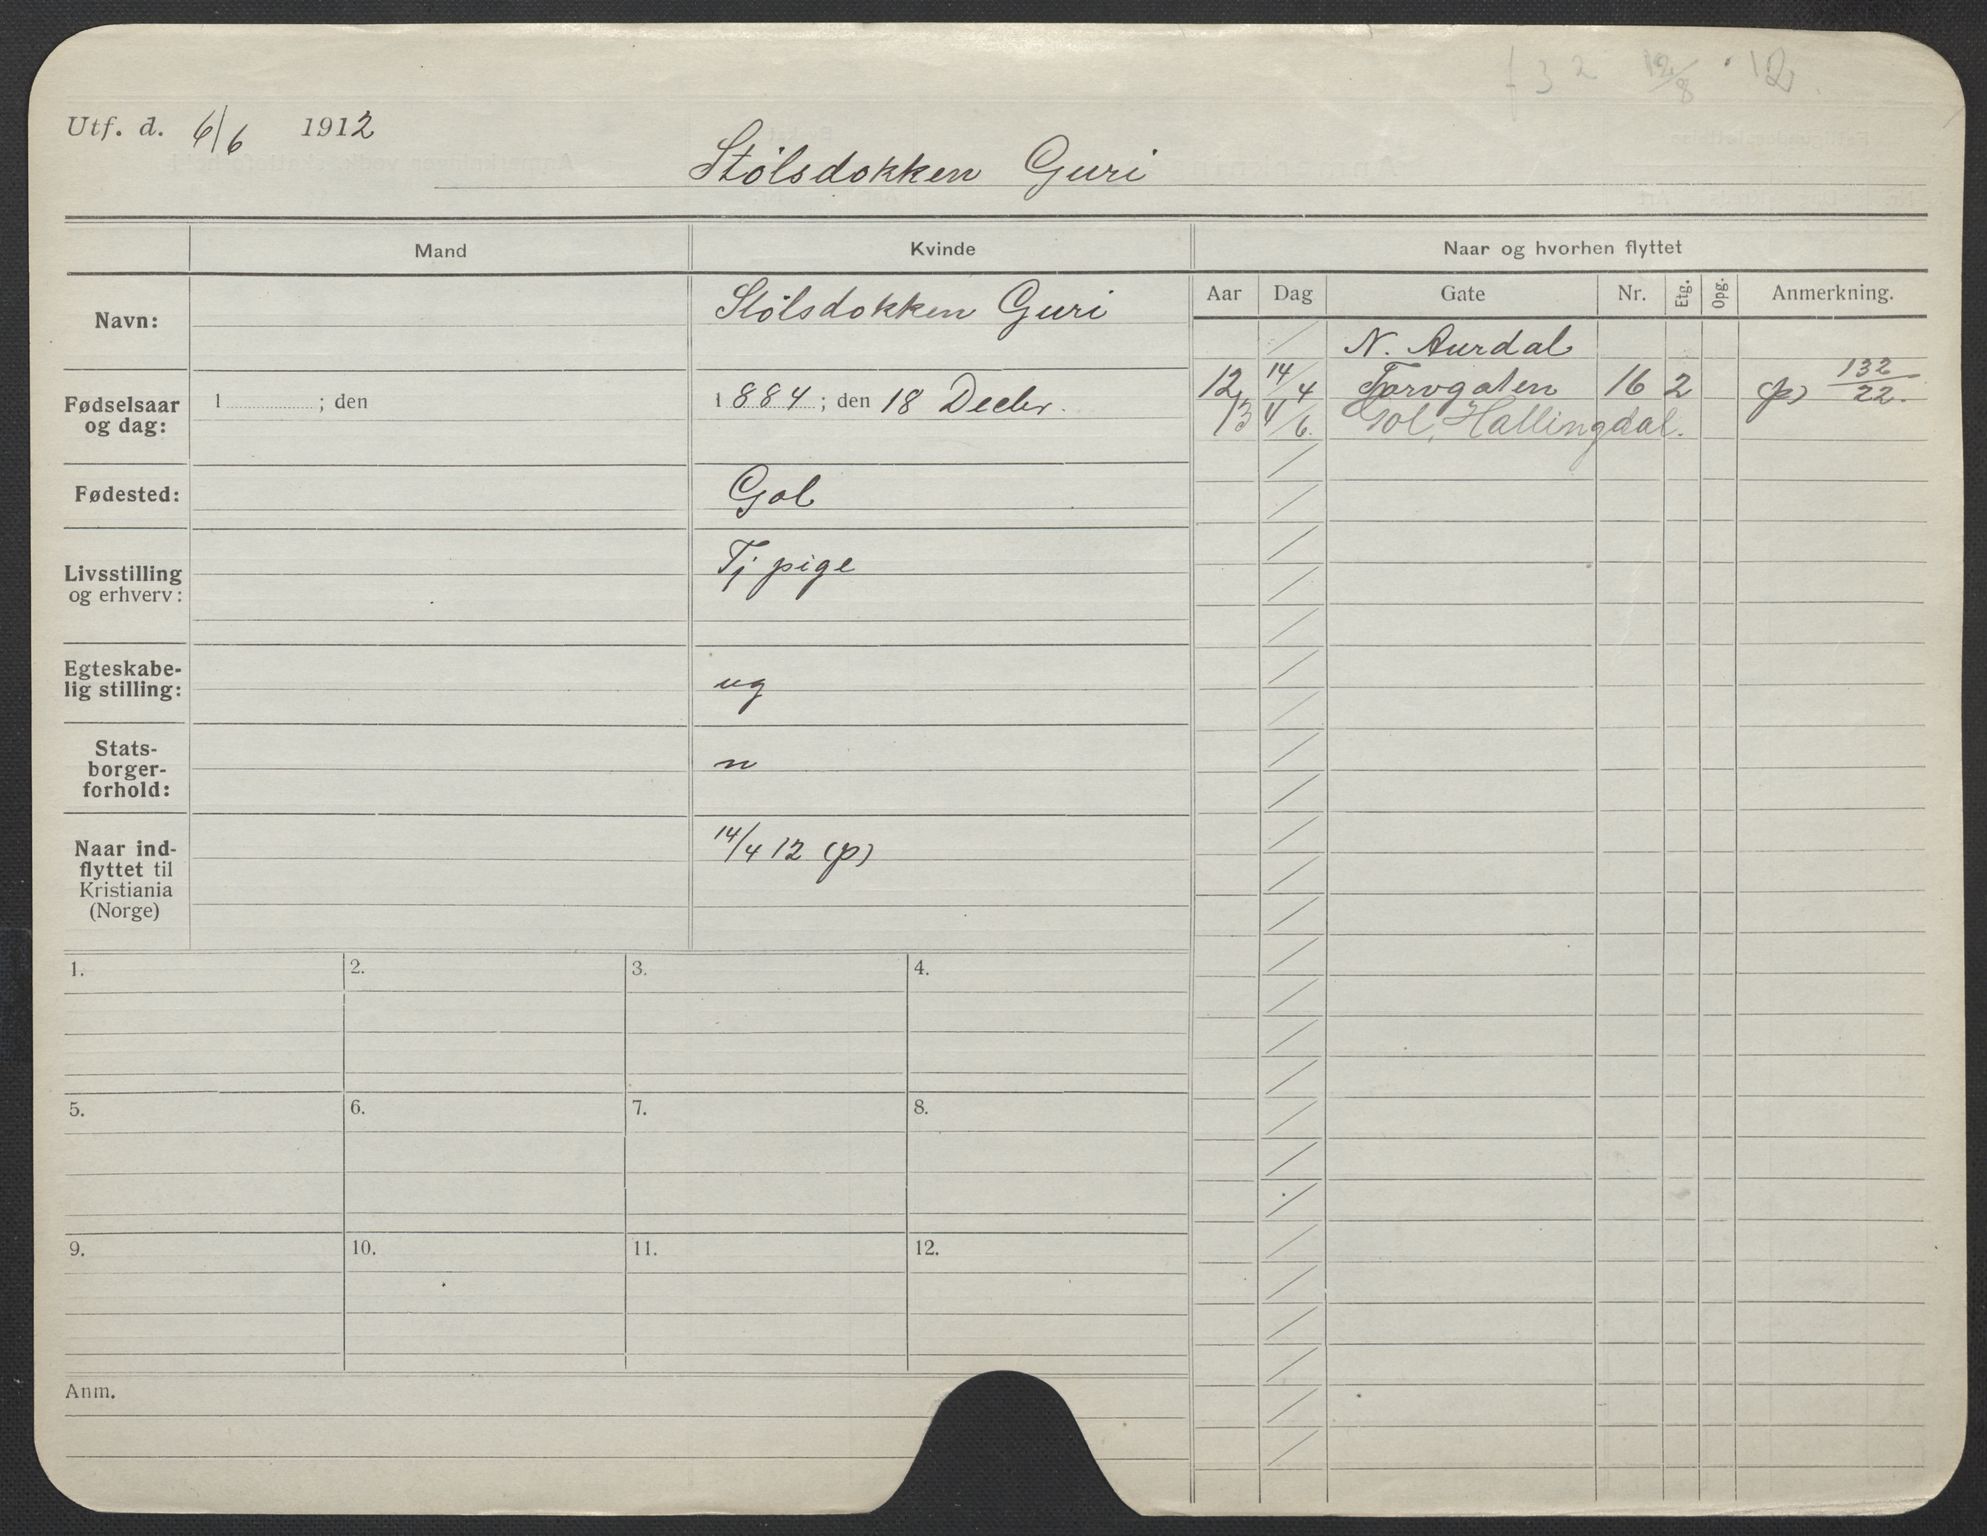 f 3 2 12/8 · 12.
Utf. d. 6/6 1912
Stölsdokken Guri
Mand
Kvinde
Naar og hvorhen flyttet
Aar Dag Gate Nr. Etg. Opg. Anmerkning.
Navn:
Stölsdokken Guri
N. Aurdal
12 14/4 Torvgaten 16 2 (p) 132/22.
13 4/6. Gol, Hallingdal.
Fødselsaar
og dag:
1 ; den
1884 ; den 18 Decbr.
Fødested:
Gol
Livsstilling
og erhverv:
Tj. pige
Egteskabe-
lig stilling:
ug
Stats-
borger-
forhold:
n
Naar ind-
flyttet til
Kristiania
(Norge)
14/4 12 (p)
1. 2. 3. 4.
5. 6. 7. 8.
9. 10. 11. 12.
Anm.